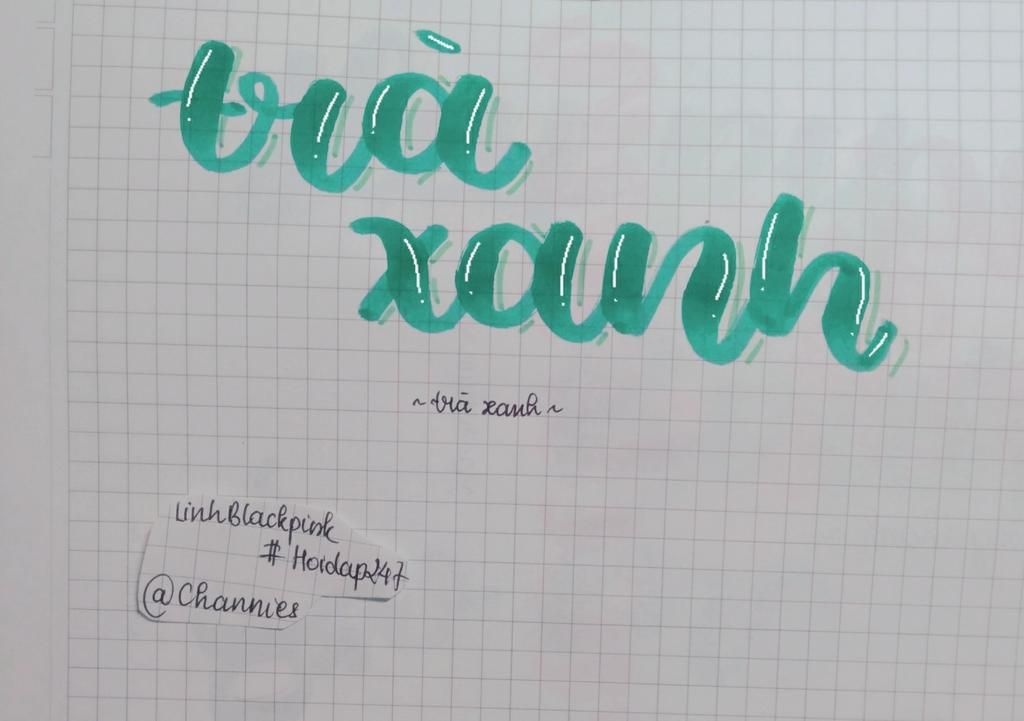 trà
xanh
~trà xanh~
LinhBlackpink
# Hoidap247
@Channies